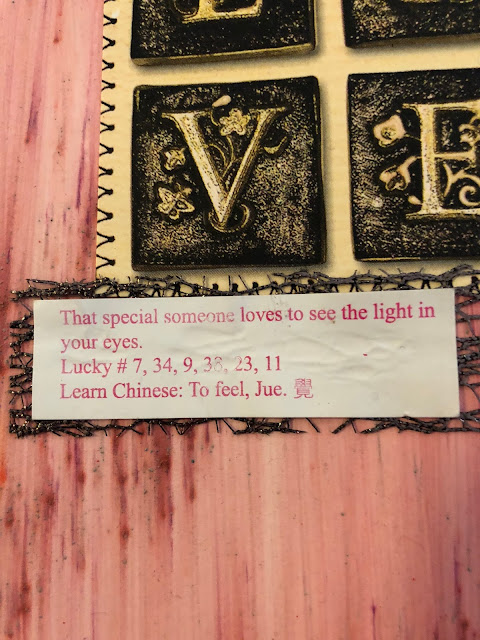 L
V E
That special someone loves to see the light in
your eyes.
Lucky # 7, 34, 9, 38, 23, 11
Learn Chinese: To feel, Jue. 覺